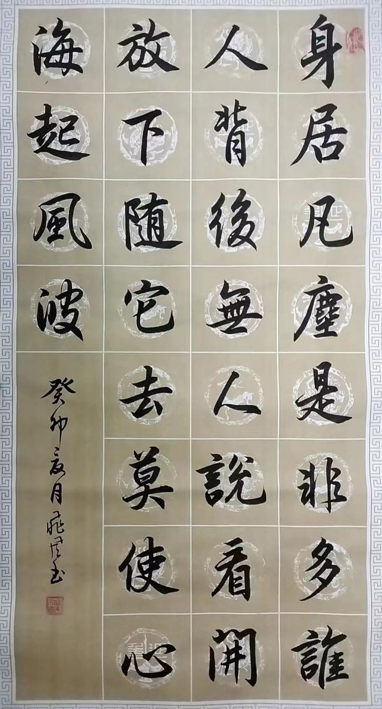 身居凡塵是非多誰
人背後無人說看開
放下随它去莫使心
海起風波
癸卯夏月